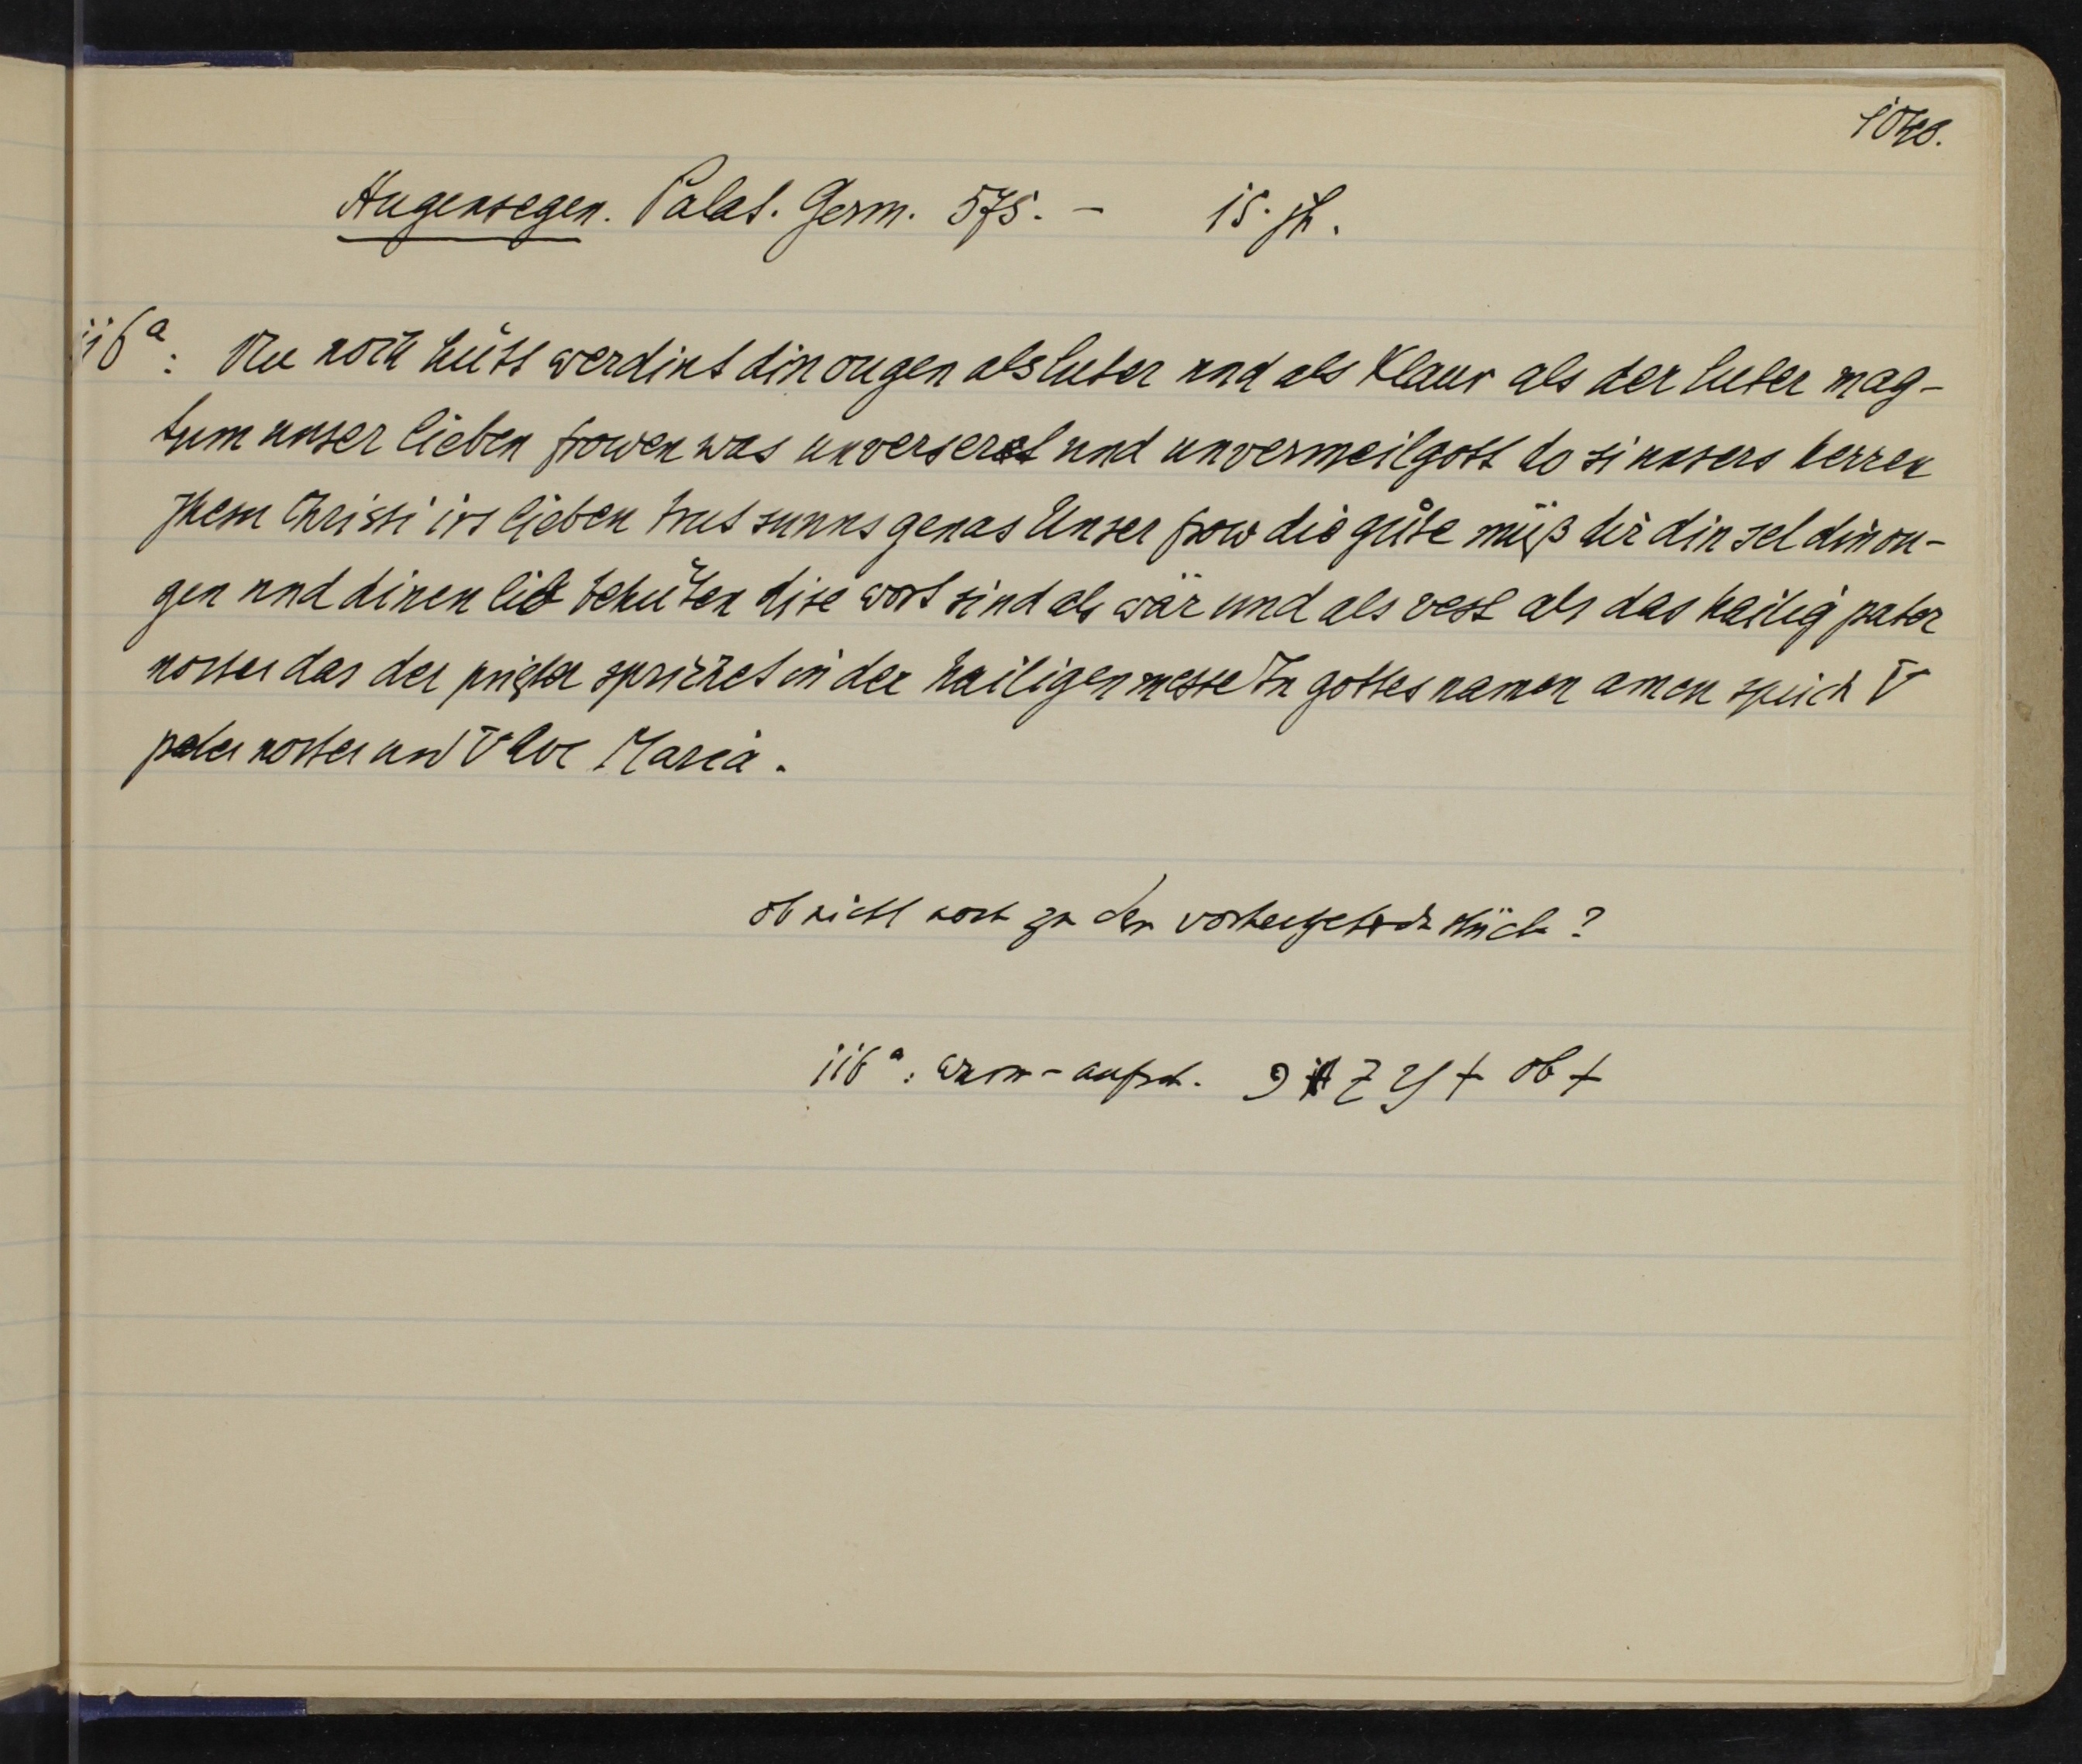 Augensegen. Palat. Germ. 575. – 15. jh.
116ᵃ: Nu noch hütt werdint din ougen als luter und als klaur als der luter mag-
tum unser lieben frowen was unverseret und unvermeilgott do si unsers herren
Jhesu Christi irs lieben trut sunns genas Unser frow die gůte můß dir din sel din ou-
gen und dinen lib behüten dise wort sind als wär und als vest als das hailig pater
noster das der priester sprichet in der hailigen messe In gottes namen amen sprich V
pater noster und V Ave Maria.
ob nicht noch zu dem vorhergehenden stück?
116ᵃ: wurm-aufsch.